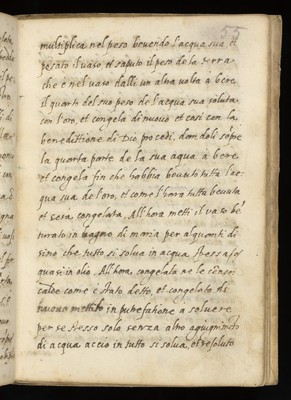 55
multiplica nel peso bevendo l'acqua sua, et
pesato il vaso, et saputo il peso de la terra
che è nel vaso dalli un altra volta a bere
il quarto del suo peso de l'acqua sua soluta
con l'oro, et congela di nuovo et cosi con la
benedittione di Dio procedi, dandoli sopre
la quarta parte de la sua aqua à bere
et congela fin che habbia bevuto tutta l'ac
qua sua de l'oro, et come l'hara tutta bevuta
et sera congelata. All'hora metti il vaso be
turato in bagno di maria per alquanti di
sino che tutto si solva in acqua stessa
quasi in olio. All'hora, congelata ne le ceneri
calde come è stato detto, et congelata di
nuovo mettilo in putrefatione a solvere
per se stesso solo senza altro agiugnimento
di acqua accio in tutto si solva, et resoluto